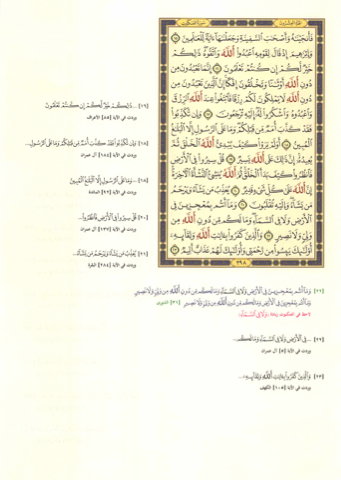 فَأَنجَيْنَٰهُ وَأَصْحَٰبَ ٱلسَّفِينَةِ وَجَعَلْنَٰهَآ ءَايَةً لِّلْعَٰلَمِينَ ۝١٥
وَإِبْرَٰهِيمَ إِذْ قَالَ لِقَوْمِهِ ٱعْبُدُوا۟ ٱللَّهَ وَٱتَّقُوهُ ذَٰلِكُمْ
خَيْرٌ لَّكُمْ إِن كُنتُمْ تَعْلَمُونَ ۝١٦ إِنَّمَا تَعْبُدُونَ مِن
دُونِ ٱللَّهِ أَوْثَٰنًا وَتَخْلُقُونَ إِفْكًا إِنَّ ٱلَّذِينَ تَعْبُدُونَ مِن
دُونِ ٱللَّهِ لَا يَمْلِكُونَ لَكُمْ رِزْقًا فَٱبْتَغُوا۟ عِندَ ٱللَّهِ ٱلرِّزْقَ
وَٱعْبُدُوهُ وَٱشْكُرُوا۟ لَهُۥٓ إِلَيْهِ تُرْجَعُونَ ۝١٧ وَإِن تُكَذِّبُوا۟
فَقَدْ كَذَّبَ أُمَمٌ مِّن قَبْلِكُمْ وَمَا عَلَى ٱلرَّسُولِ إِلَّا ٱلْبَلَٰغُ
ٱلْمُبِينُ ۝١٨ أَوَلَمْ يَرَوْا۟ كَيْفَ يُبْدِئُ ٱللَّهُ ٱلْخَلْقَ ثُمَّ
يُعِيدُهُۥٓ إِنَّ ذَٰلِكَ عَلَى ٱللَّهِ يَسِيرٌ ۝١٩ قُلْ سِيرُوا۟ فِى ٱلْأَرْضِ
فَٱنظُرُوا۟ كَيْفَ بَدَأَ ٱلْخَلْقَ ثُمَّ ٱللَّهُ يُنشِئُ ٱلنَّشْأَةَ ٱلْءَاخِرَةَ
إِنَّ ٱللَّهَ عَلَىٰ كُلِّ شَىْءٍ قَدِيرٌ ۝٢٠ يُعَذِّبُ مَن يَشَآءُ وَيَرْحَمُ
مَن يَشَآءُ وَإِلَيْهِ تُقْلَبُونَ ۝٢١ وَمَآ أَنتُم بِمُعْجِزِينَ فِى
ٱلْأَرْضِ وَلَا فِى ٱلسَّمَآءِ وَمَا لَكُم مِّن دُونِ ٱللَّهِ مِن
وَلِىٍّ وَلَا نَصِيرٍ ۝٢٢ وَٱلَّذِينَ كَفَرُوا۟ بِـَٔايَٰتِ ٱللَّهِ وَلِقَآئِهِۦٓ
أُو۟لَٰٓئِكَ يَئِسُوا۟ مِن رَّحْمَتِى وَأُو۟لَٰٓئِكَ لَهُمْ عَذَابٌ أَلِيمٌ ۝٢٣
٣٩٨
[١٦] ... ذَٰلِكُمْ خَيْرٌ لَّكُمْ إِن كُنتُمْ تَعْلَمُونَ
وردت في الآية [٨٥] الأعراف
[١٨] وَإِن تُكَذِّبُوا۟ فَقَدْ كَذَّبَ أُمَمٌ مِّن قَبْلِكُمْ وَمَا عَلَى ٱلرَّسُولِ...
[١٨] ... وَمَا عَلَى ٱلرَّسُولِ إِلَّا ٱلْبَلَٰغُ ٱلْمُبِينُ
وردت في الآية [٩٢] المائدة
[٢٠] قُلْ سِيرُوا۟ فِى ٱلْأَرْضِ فَٱنظُرُوا۟...
وردت في الآية [١٣٧] آل عمران
[٢١] يُعَذِّبُ مَن يَشَآءُ وَيَرْحَمُ مَن يَشَآءُ...
وردت في الآية [٢٨٤] البقرة
[٢٢] وَمَآ أَنتُم بِمُعْجِزِينَ فِى ٱلْأَرْضِ وَلَا فِى ٱلسَّمَآءِ وَمَا لَكُم مِّن دُونِ ٱللَّهِ مِن وَلِىٍّ وَلَا نَصِيرٍ
وَمَآ أَنتُم بِمُعْجِزِينَ فِى ٱلْأَرْضِ وَمَا لَكُم مِّن دُونِ ٱللَّهِ مِن وَلِىٍّ وَلَا نَصِيرٍ [٣١] الشورى
لاحظ في العنكبوت زيادة: وَلَا فِى ٱلسَّمَآءِ
[٢٢] ... فِى ٱلْأَرْضِ وَلَا فِى ٱلسَّمَآءِ وَمَا لَكُم...
وردت في الآية [٥] آل عمران
[٢٣] وَٱلَّذِينَ كَفَرُوا۟ بِـَٔايَٰتِ ٱللَّهِ وَلِقَآئِهِۦٓ...
وردت في الآية [١٠٥] الكهف